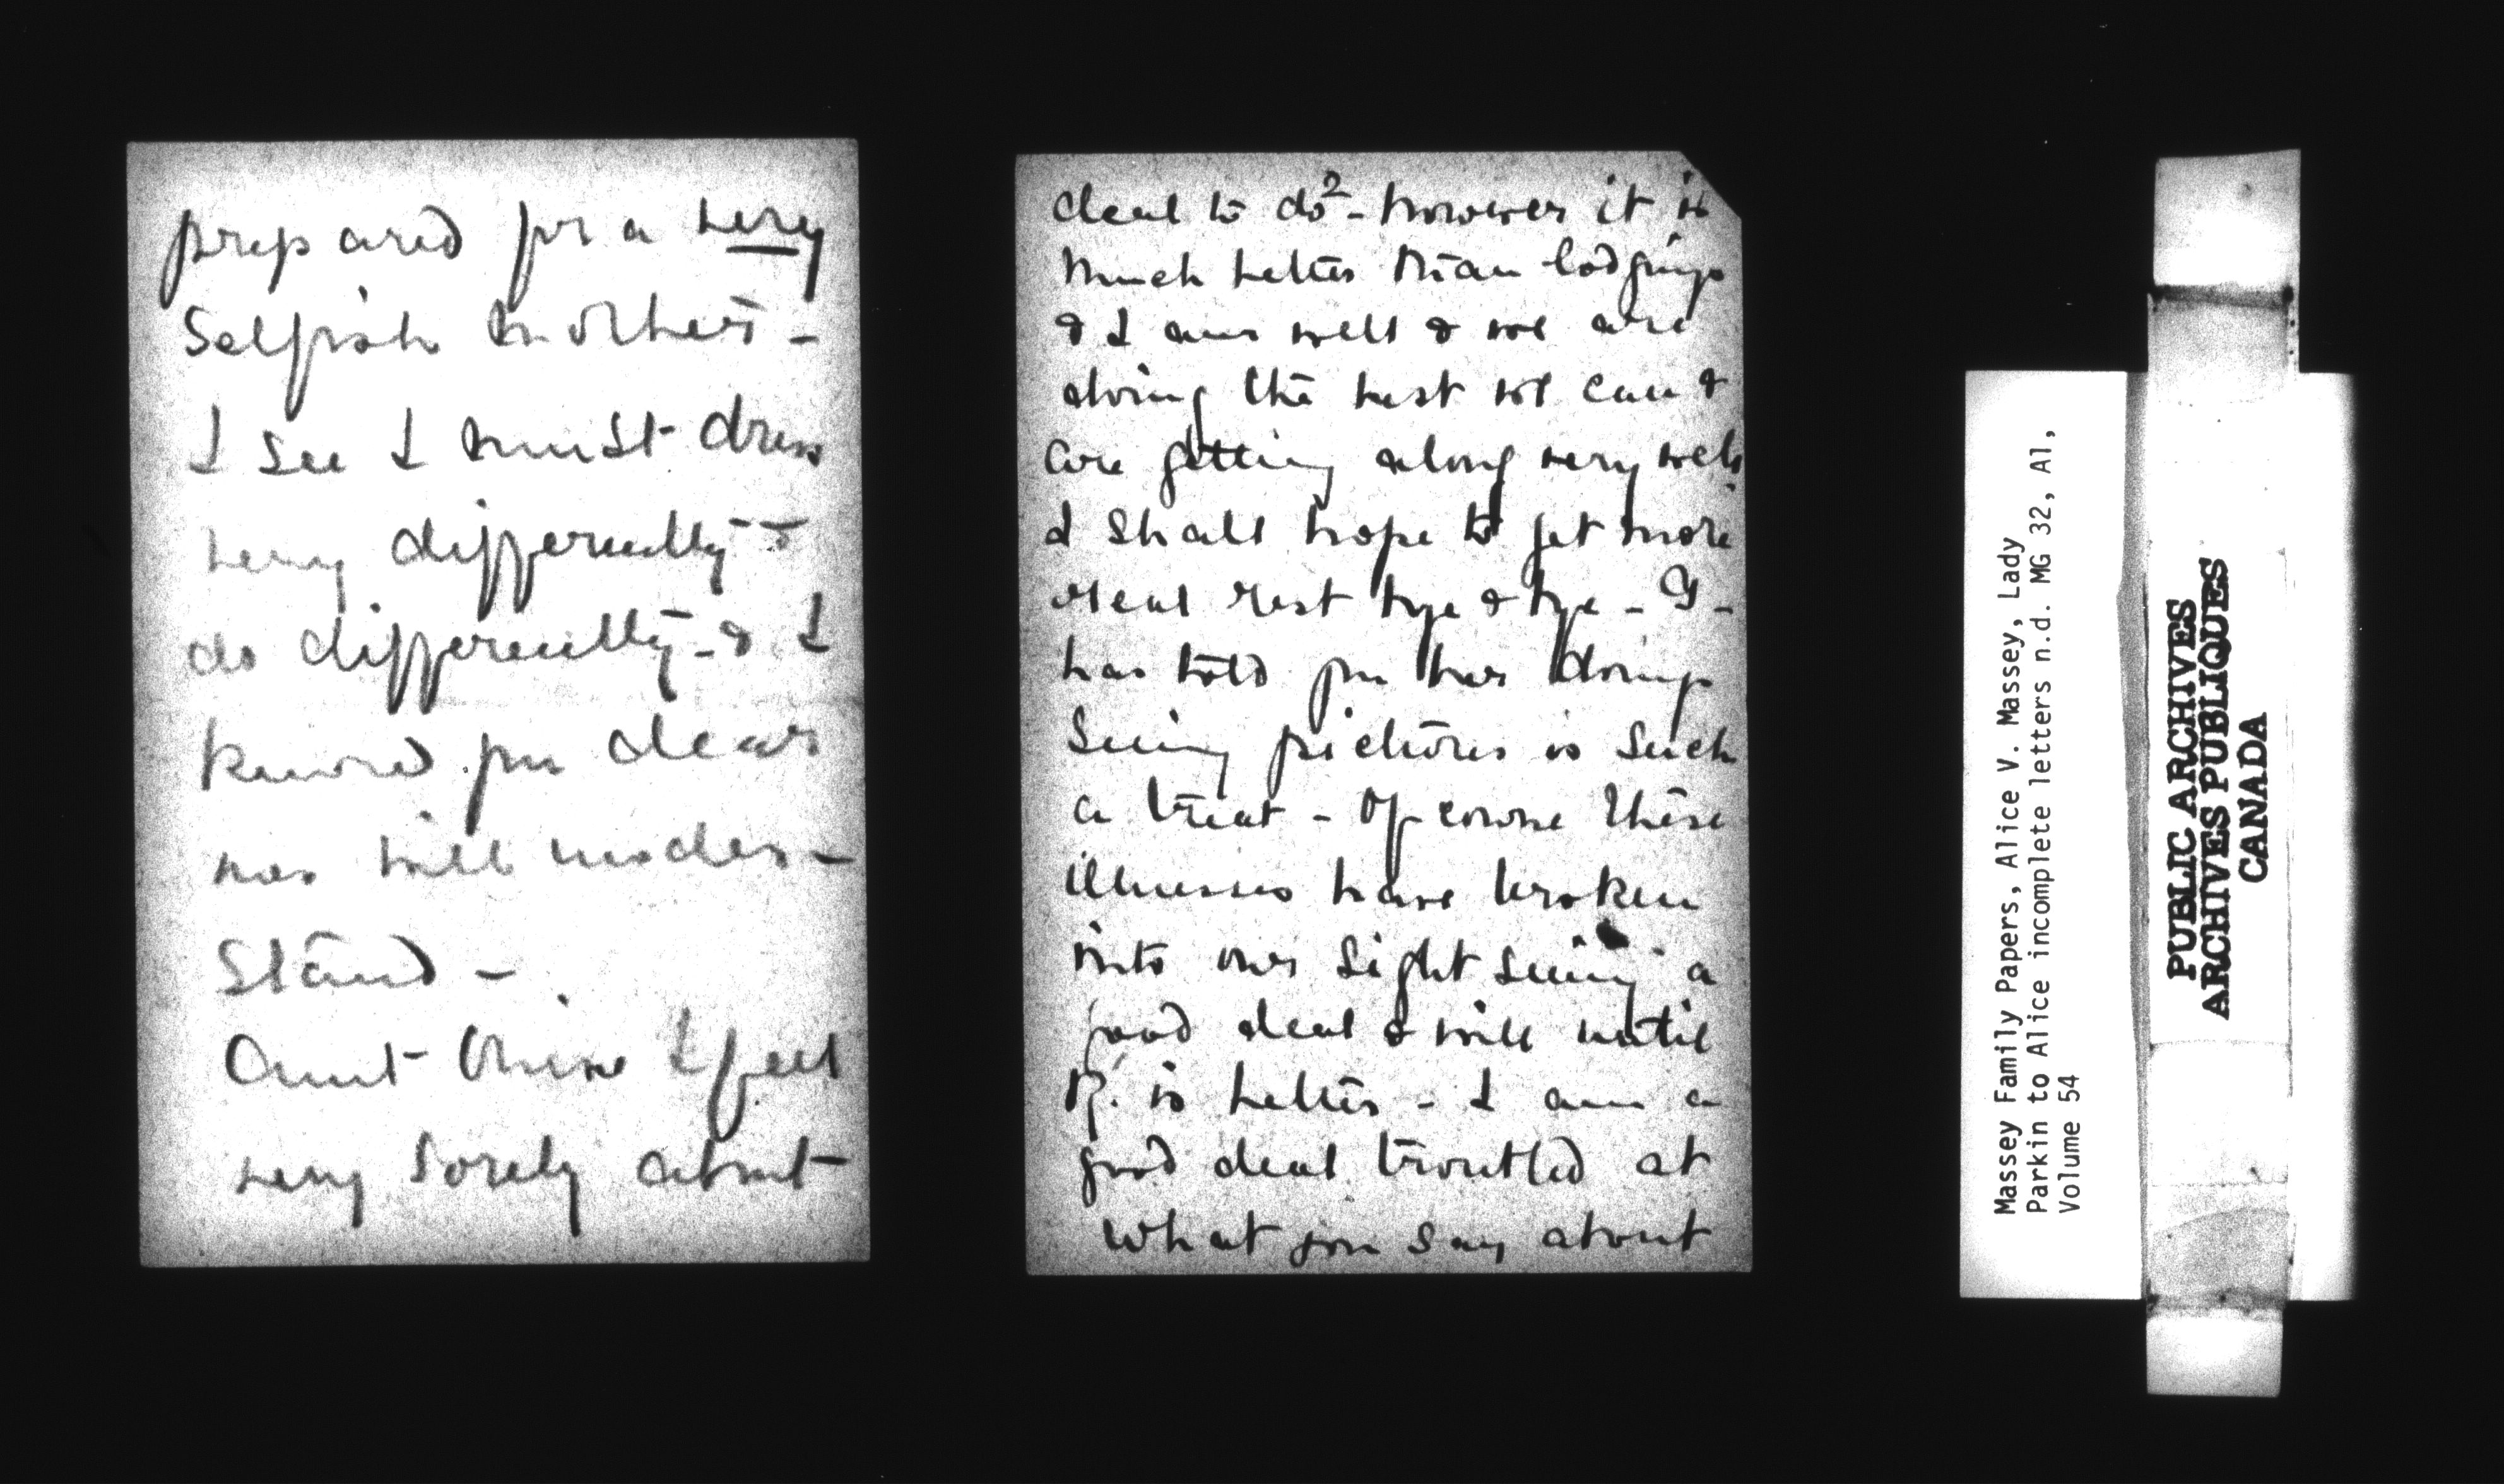 prepared for a very
Selfish mother -
I see I must dress
very differently - &
do differently - & I
know you dear
two will under -
stand -
Aunt & I feel
very sorely about
deal to do - however it is
much better than lodgings
& I am well & we are
doing the best we can &
are getting along very well
I shall hope to get more
real rest bye & bye - G -
has told you her doings
Seeing pictures is such
a treat - Of course these
illnesses have broken
into our sight seeing a
good deal & will until
is better - I am a
good deal troubled at
what you say about
Massey Family Papers, Alice V. Massey, Lady
Parkin to Alice incomplete letters n.d. MG 32, A1,
Volume 54
PUBLIC ARCHIVES
ARCHIVES PUBLIQUES
CANADA